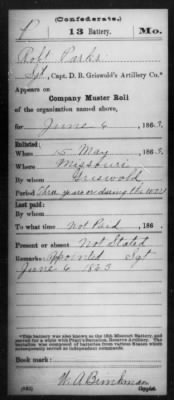 (Confederate.)
P 13 Battery. Mo.
Robt Parks
Sgt, Capt. D. B. Griswold's Artillery Co.*
Appears on
Company Muster Roll
of the organization named above,
for June 6, 1863.
Enlisted:
When 5 May, 1863.
Where Missouri
By whom Griswold
Period Three years or during the war
Last paid:
By whom
To what time Not Paid, 186 .
Present or absent Not Stated
Remarks: Appointed Sgt
June 6 1863
*This battery was also known as the 13th Missouri Battery, and
served for a while with Battalion, Reserve Artillery. The
battalion was composed of batteries from various States which
subsequently served as independent commands.
Book mark:
(642) W. A. Brinkman
Copyist.